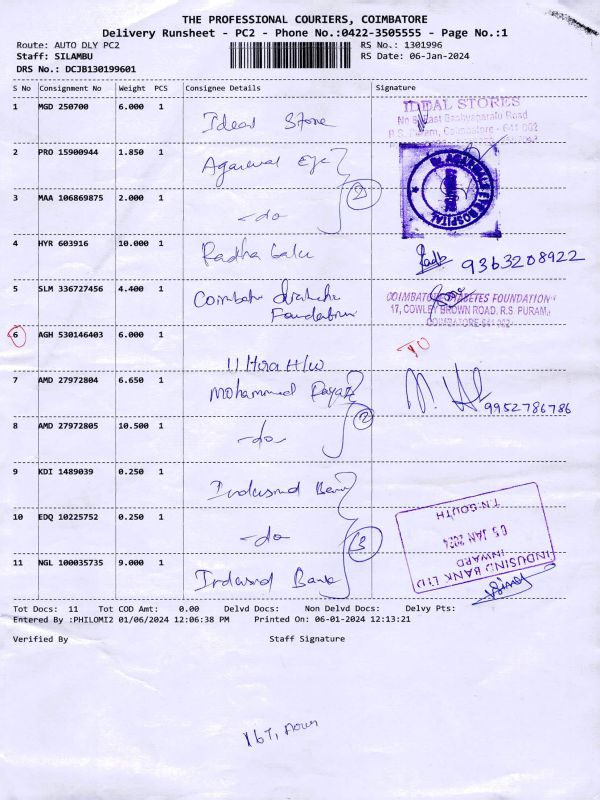 THE PROFESSIONAL COURIERS, COIMBATORE
Delivery Runsheet - PC2 - Phone No.:0422-3505555 - Page No.:1
Route: AUTO DLY PC2 RS No.: 1301996
Staff: SILAMBU RS Date: 06-Jan-2024
DRS No.: DCJB130199601
S No Consignment No Weight PCS Consignee Details Signature
1 MGD 250700 6.000 1 Ideal Store
IDEAL STORES
R.S. Puram, Coimbatore - 641 002
2 PRO 15900944 1.850 1 Agarwal Eye
2
DR. AGARWAL'S EYE HOSPITAL
3 MAA 106869875 2.000 1 -do-
4 HYR 603916 10.000 1 Radha 9363208922
5 SLM 336727456 4.400 1 Coimbatore
COIMBATORE DIABETES FOUNDATION
17, COWLEY BROWN ROAD. R.S. PURAM,
COIMBATORE-641 002
6 AGH 530146403 6.000 1
H/W
7 AMD 27972804 6.650 1 Mohammed
9952786786
8 AMD 27972805 10.500 1 -do-
2
9 KDI 1489039 0.250 1 Indusind Bank
10 EDQ 10225752 0.250 1 -do-
3
11 NGL 100035735 9.000 1 Indusind Bank
INDUSIND BANK LTD
INWARD
05 JAN 2024
T.N. SOUTH
Tot Docs: 11 Tot COD Amt: 0.00 Delvd Docs: Non Delvd Docs: Delvy Pts:
Entered By :PHILOMI2 01/06/2024 12:06:38 PM Printed On: 06-01-2024 12:13:21
Verified By Staff Signature